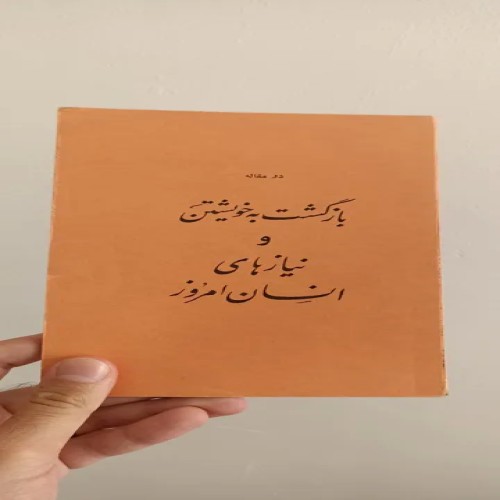 دو مقاله
بازگشت به خویشتن
و
نیازهای
انسان امروز